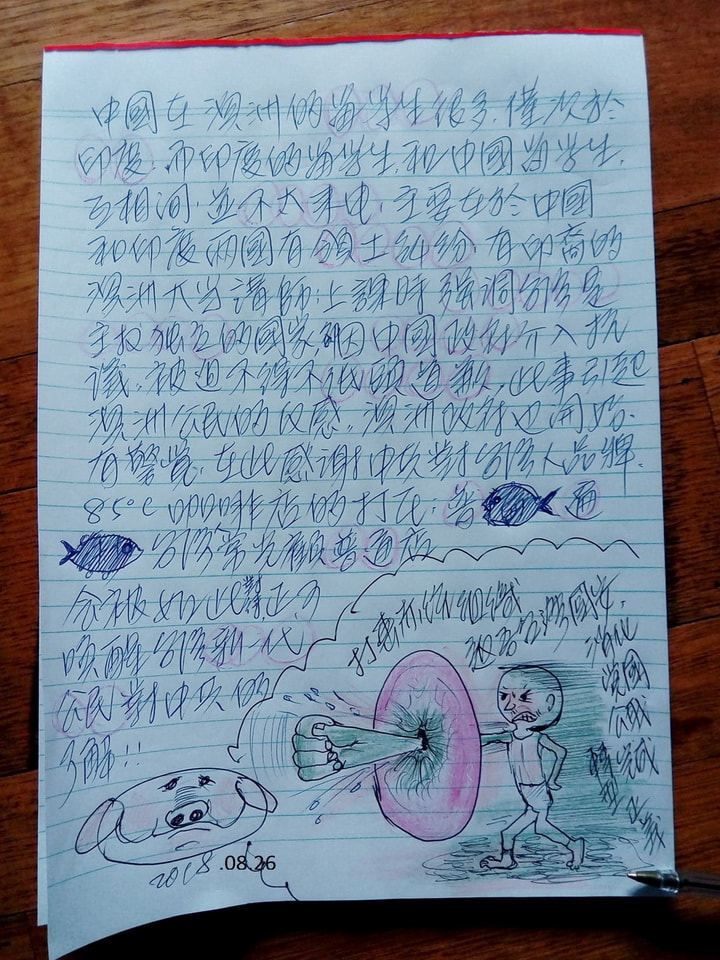 中國在澳洲的留學生很多,僅次於
印度,而印度的留學生,和中國留學生,
互相間,並不太來电,主要在於中國
和印度兩國有領土糾紛,有印裔的
澳洲大学講師,上課時強調台湾是
主权独立的國家,卻因中國政府介入抗
議,被迫不得不低頭道歉,此事引起
澳洲公民的反感。澳洲政府也開始
有警觉,在此感谢中共對台湾人品牌
85°C咖啡店的打压,普通
台湾常光顧普通店
会被如此對正可
喚醒台湾新一代
公民對中共的
了解!!
打嘉
組織
台湾國安,
消化
党國
公職
轉型正義
2018.08.26